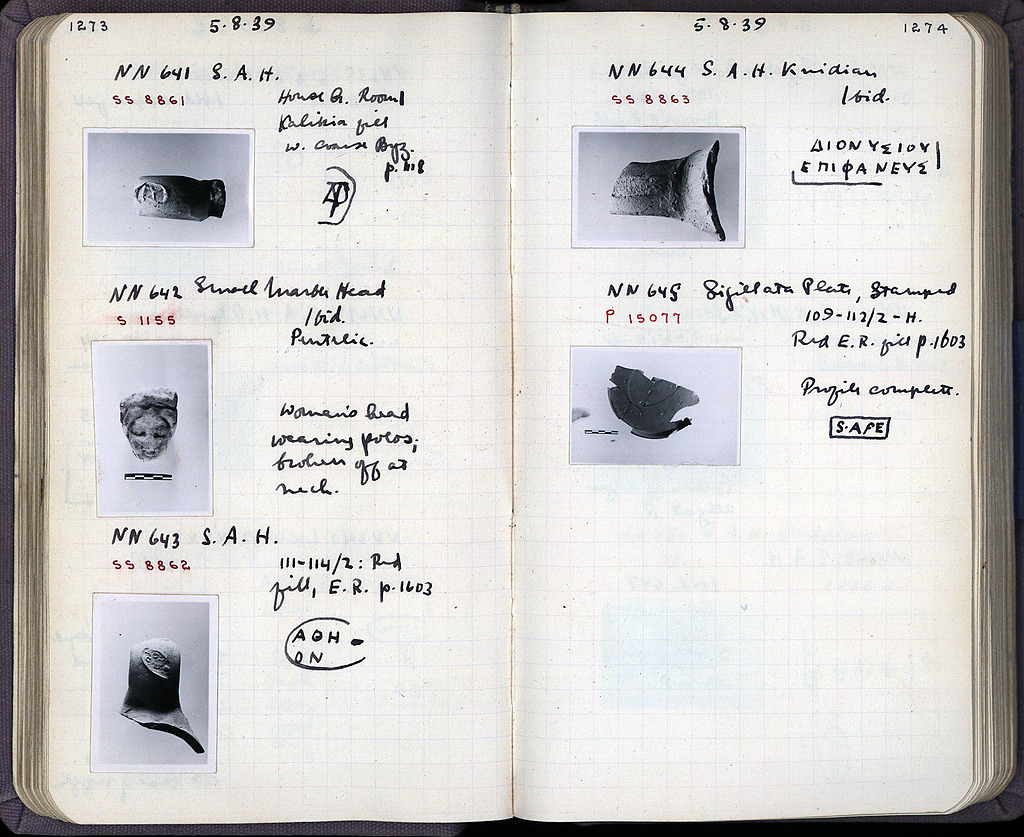 1273
5·8·39
NN 641 S. A. H.
SS 8861
House G. Room 1
fill
w. coarse Byz.
p.
NN 642 Small Marble Head
S 1155
Ibid.
Pentelic.
Woman's head
wearing polos;
broken off at
neck.
NN 643 S. A. H.
SS 8862
111-114/2: Red
fill, E. R. p. 1603
ΑΘΗ
ΟΝ
5·8·39
1274
NN 644 S. A. H. Knidian
SS 8863
Ibid.
ΔΙΟΝΥΣΙΟΥ
ΕΠΙΦΑΝΕΥΣ
NN 645 Sigillata Plate, Stamped
P 15077
109-112/2-H.
Red E. R. fill p. 1603
Profile complete.
S·APE